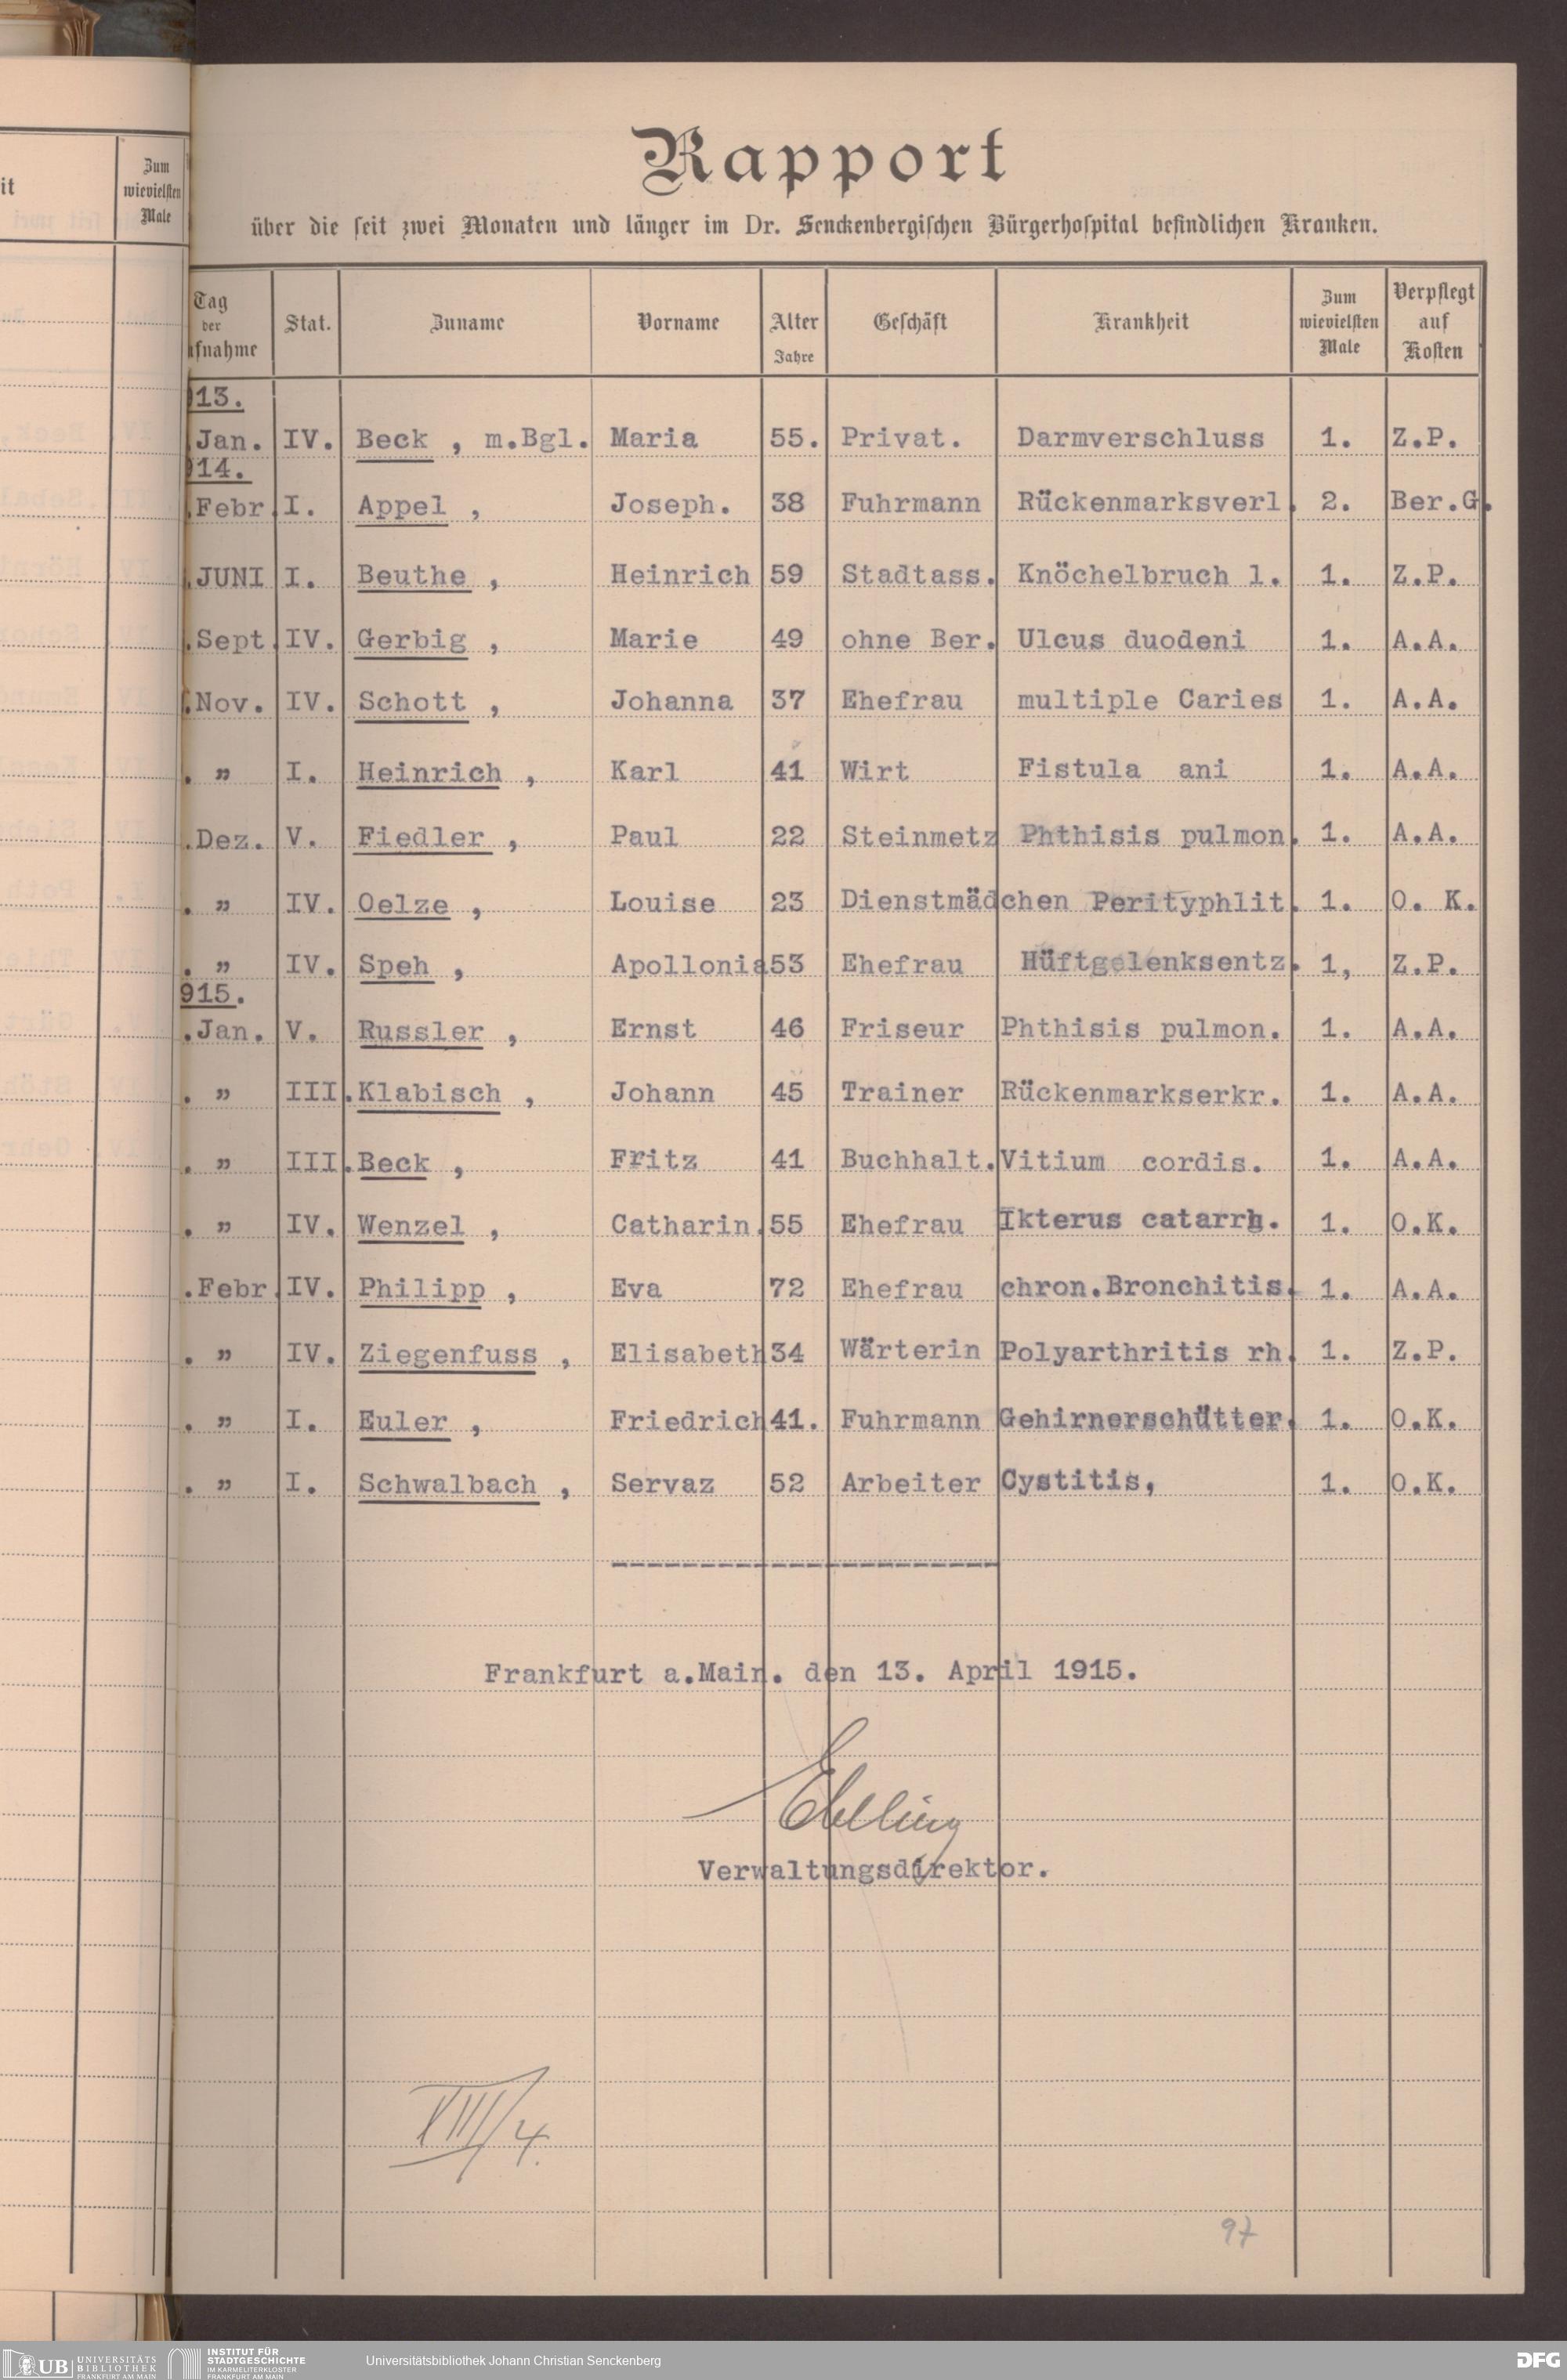 it
Zum
wievielsten
Male
Rapport
über die seit zwei Monaten und länger im Dr. Senckenbergischen Bürgerhospital befindlichen Kranken.
Tag der ufnahme | Stat. | Zuname | Vorname | Alter Jahre | Geschäft | Krankheit | Zum wievielsten Male | Verpflegt auf Kosten
913.
.Jan. IV. Beck , m.Bgl. Maria 55. Privat. Darmverschluss 1. Z.P.
914.
.Febr. I. Appel , Joseph. 38 Fuhrmann Rückenmarksverl. 2. Ber.G.
.JUNI I. Beuthe , Heinrich 59 Stadtass. Knöchelbruch l. 1. Z.P.
.Sept. IV. Gerbig , Marie 49 ohne Ber. Ulcus duodeni 1. A.A.
.Nov. IV. Schott , Johanna 37 Ehefrau multiple Caries 1. A.A.
. " I. Heinrich , Karl 41 Wirt Fistula ani 1. A.A.
.Dez. V. Fiedler , Paul 22 Steinmetz Phthisis pulmon. 1. A.A.
. " IV. Oelze , Louise 23 Dienstmädchen Perityphlit. 1. O. K.
. " IV. Speh , Apollonia 53 Ehefrau Hüftgelenksentz. 1, Z.P.
915.
.Jan. V. Russler , Ernst 46 Friseur Phthisis pulmon. 1. A.A.
. " III. Klabisch , Johann 45 Trainer Rückenmarkserkr. 1. A.A.
. " III. Beck , Fritz 41 Buchhalt. Vitium cordis. 1. A.A.
. " IV. Wenzel , Catharin. 55 Ehefrau Ikterus catarrh. 1. O.K.
.Febr. IV. Philipp , Eva 72 Ehefrau chron.Bronchitis. 1. A.A.
. " IV. Ziegenfuss , Elisabeth 34 Wärterin Polyarthritis rh. 1. Z.P.
. " I. Euler , Friedrich 41. Fuhrmann Gehirnerschütter. 1. O.K.
. " I. Schwalbach , Servaz 52 Arbeiter Cystitis, 1. O.K.
----------------------
Frankfurt a.Main. den 13. April 1915.
Ebeling
Verwaltungsdirektor.
XIII/4.
97
UB UNIVERSITÄTS BIBLIOTHEK FRANKFURT AM MAIN
INSTITUT FÜR STADTGESCHICHTE IM KARMELITERKLOSTER FRANKFURT AM MAIN
Universitätsbibliothek Johann Christian Senckenberg
DFG